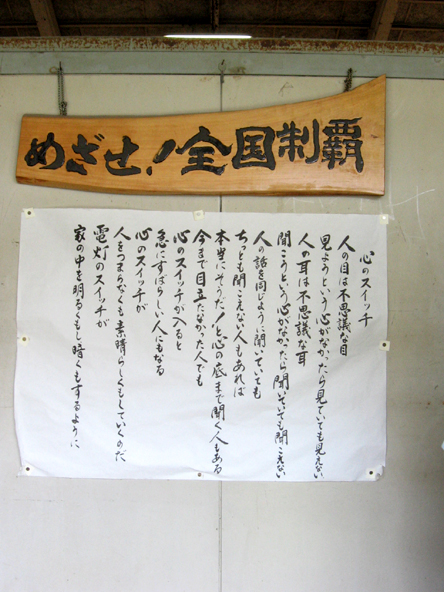 めざせ！全国制覇
心のスイッチ
人の目は不思議な目
見ようという心がなかったら見ていても見えない
人の耳は不思議な耳
聞こうという心がなかったら聞いていても聞こえない
人の話を同じように聞いていても
ちっとも聞こえない人もあれば
本当にそうだ！と心の底まで聞く人もある
今まで目立たなかった人でも
心のスイッチが入ると
急にすばらしい人にもなる
心のスイッチが
人をつまらなくも素晴らしくもしていくのだ
電灯のスイッチが
家の中を明るくもし暗くもするように